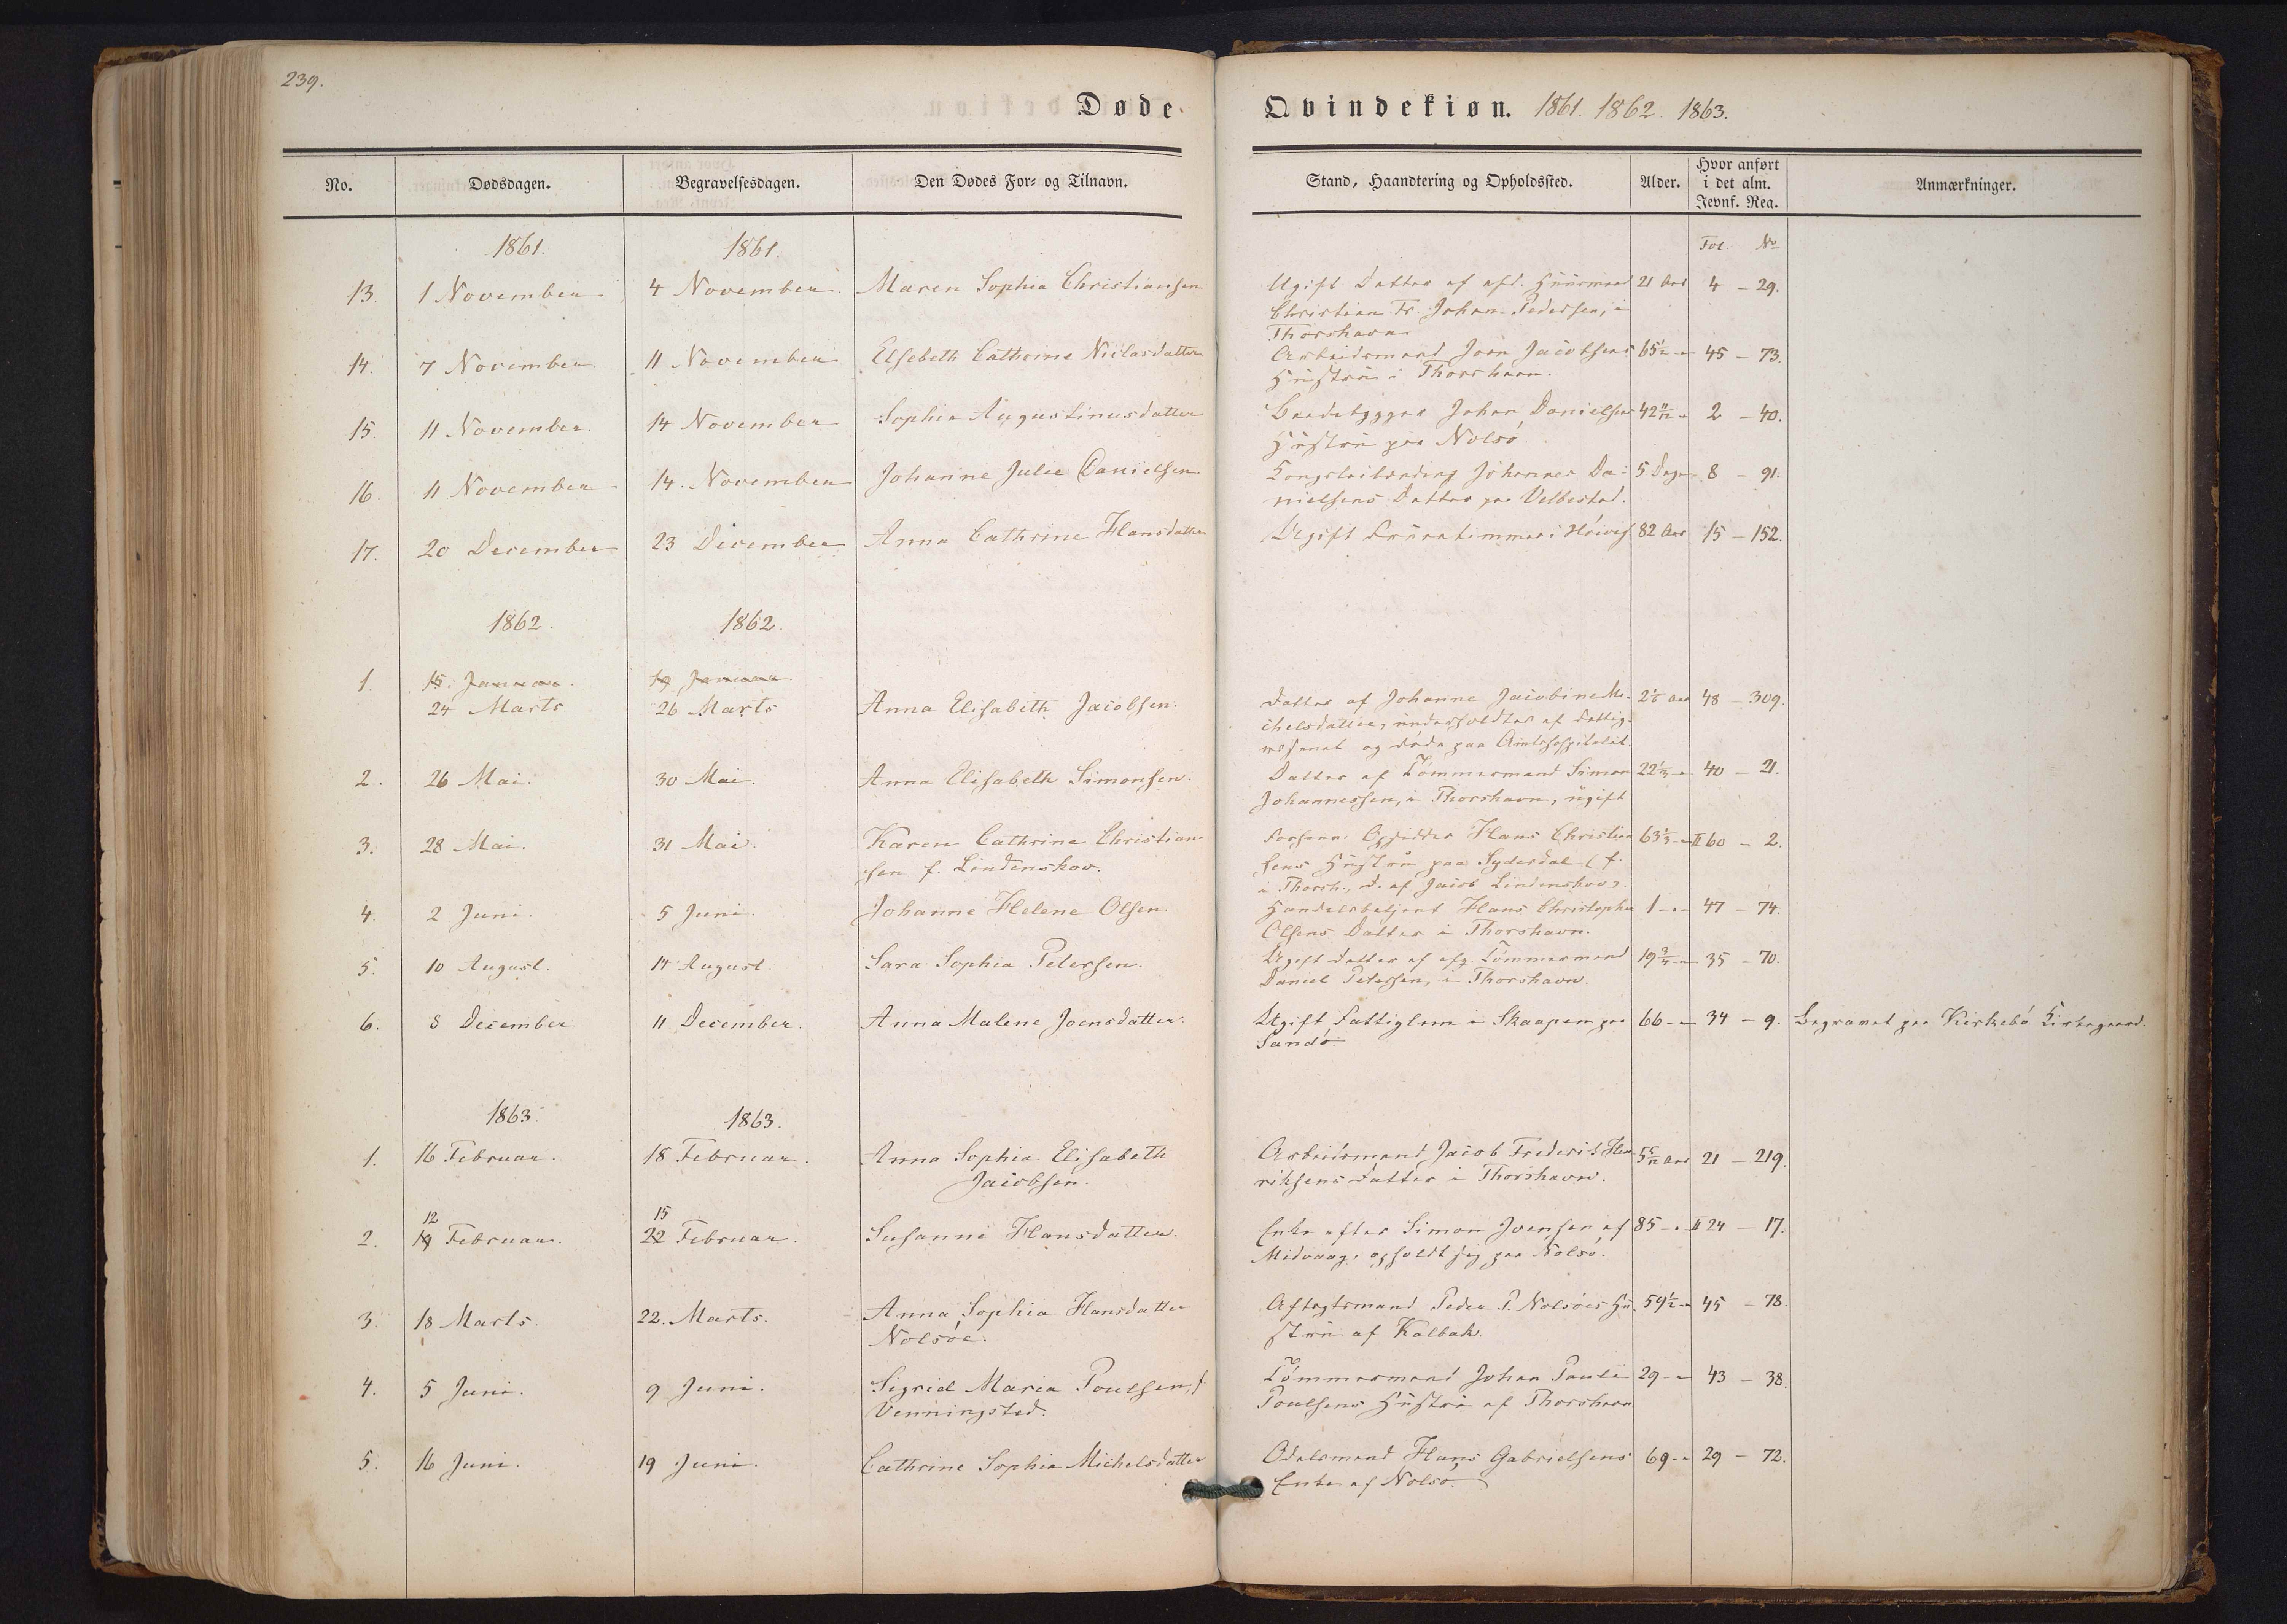 239.
Døde
Qvindekiøn. 1861. 1862. 1863.
No. Dødsdagen. Begravelsesdagen. Den Dødes For- og Tilnavn. Stand, Haandtering og Opholdssted. Alder. Hvor anført i det alm. Jevnf. Reg. Anmærkninger.
1861. 1861. Fol. No
13. 1 November 4 November Maren Sophia Christiansen Ugift Datter af afd. Huusmand 21 Aar 4 - 29.
Christian Fr. Johan Pedersen, i
Thorshavn
14. 7 November 11 November Elsebeth Cathrine Niclasdatter Arbeidsmand Joen Jacobsens 65 1/2 - 45 - 73.
Hustru i Thorshavn.
15. 11 November. 14 November Sophia Augustinusdatter Baadebygger Johan Danielsens 42 11/12 - 2 - 40.
Hustru paa Nolsø
16. 11 November 14. November Johanne Julie Danielsen Kongsleilænding Johannes Da- 5 Dage 8 - 91.
nielsens Datter paa Velbestad.
17. 20 December 23 December Anna Cathrine Hansdatter Ugift Fruentimmer i Hoivig 82 Aar 15 - 152.
1862. 1862.
1. 15. Januar. 19 Januar
24 Marts 26 Marts Anna Elisabeth Jacobsen. Datter af Johanne Jacobine Mi- Aar 48 - 309.
chelsdatter, underholdtes af Fattig-
væsenet og døde paa Amtshospitalet.
2. 26 Mai. 30 Mai. Anna Elisabeth Simonsen. Datter af Tømmermand Simon 22 1/3 - 40 - 21.
Johannessen, i Thorshavn, ugift
3. 28 Mai. 31 Mai. Karen Cathrine Christian- Forhenv. Opsidder Hans Christian 63 1/3 - II 60 - 2.
sen f. Lindenskov. sens Hustru paa Syderdal (f.
i Thorsh., D. af Jacob Lindenskov).
4. 2 Juni. 5 Juni. Johanne Helene Olsen. Handelsbetjent Hans Christopher 1 - 47 - 74.
Olsens Datter i Thorshavn.
5. 10 August. 14 August. Sara Sophia Petersen. Ugift Datter af afg. Tømmermand 19 3/4 - 35 - 70.
Daniel Petersen, i Thorshavn.
6. 8 December 11 December. Anna Malene Joensdatter Ugift Fattiglem i Skaapen paa 66 - 34 - 9. Begravet paa Kirkebø Kirkegaard.
Sandø.
1863. 1863.
1. 16 Februar. 18 Februar. Anna Sophia Elisabeth Arbeidsmand Jacob Frederik Hen- 5 5/12 Aar 21 - 219.
Jacobsen. riksens Datter i Thorshavn.
12 15
2. 19 Februar. 22 Februar. Susanne Hansdatter. Enke efter Simon Joensen af 85 - II 24 - 17.
Midvaag, opholdt sig paa Nolsø.
3. 18 Marts. 22. Marts. Anna Sophia Hansdatter Aftægtsmand Peder P. Nolsøes Hu- 59 1/2 - 45 - 78.
Nolsøe. stru af Kalbak.
4. 5 Juni. 9 Juni. Sigrid Maria Poulsen, f. Tømmermand Johan Pauli 29 - 43 - 38.
Venningsted. Poulsens Hustru af Thorshavn
5. 16 Juni. 19 Juni. Cathrine Sophia Michelsdatter Odelsmand Hans Gabrielsens 69 - 29 - 72.
Enke af Nolsø.